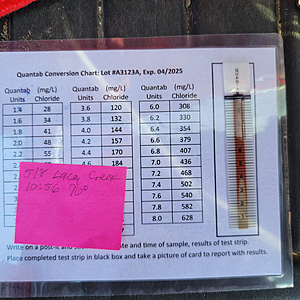 Quantab Conversion Chart: Lot #A3123A, Exp. 04/2025
Quantab Units (mg/L) Chloride Quantab Units (mg/L) Chloride Quantab Units (mg/L) Chloride
1.4 28 3.6 120 6.0 308
1.6 34 3.8 132 6.2 330
1.8 41 4.0 144 6.4 354
2.0 48 4.2 157 6.6 379
2.2 55 4.4 170 6.8 407
4.6 184 7.0 436
7.2 468
7.4 502
7.6 540
7.8 582
8.0 628
5/8 Creek
10:56
Write on a post-it and date and time of sample, results of test strip.
Place completed test strip in black box and take a picture of card to report with results.
QUAN